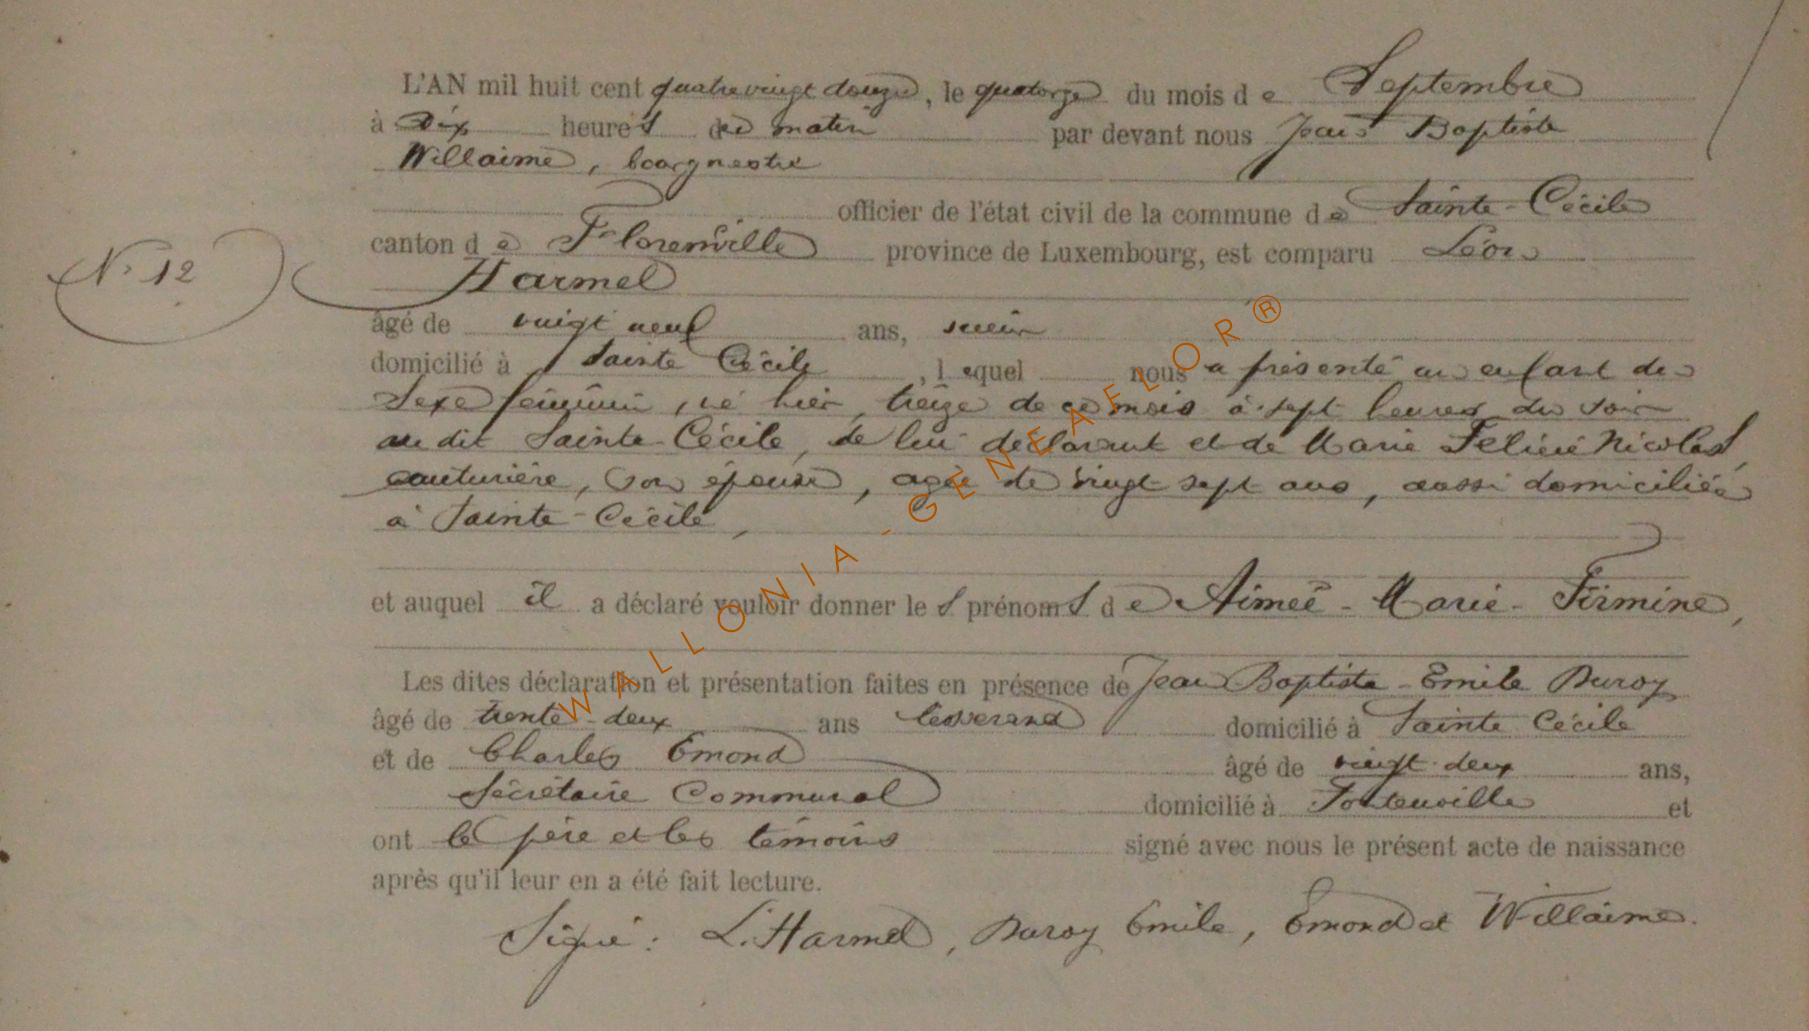 L'AN mil huit cent quatrevingt douze, le quatorze du mois de Septembre
à Dix heures du matin par devant nous Jean Baptiste
Willaime, bourgmestre
officier de l'état civil de la commune de Sainte-Cécile
canton de Florenville province de Luxembourg, est comparu Léon
N° 12
Harmel
âgé de vingt neuf ans, scieur
domicilié à Sainte Cécile, lequel nous a présenté un enfant de
Sexe féminin, né hier, treize de ce mois à sept heures du soir
au dit Sainte-Cécile, de lui déclarant et de Marie Nicolas,
couturière, son épouse, agée de vingt sept ans, aussi domiciliée
à Sainte-Cécile,
et auquel il a déclaré vouloir donner les prénoms de Aimeé-Marie-Firmine,
Les dites déclaration et présentation faites en présence de Jean Baptiste-Emile Duroy
âgé de trente-deux ans domicilié à Sainte Cécile
et de Charles Emond âgé de vingt-deux ans,
Sécrétaire Communal domicilié à Fontenoille et
ont le père et les témoins signé avec nous le présent acte de naissance
après qu'il leur en a été fait lecture.
Signé: L. Harmel, Duroy Emile, Emond et Willaime.
WALLONIA-GENEAFLOR®